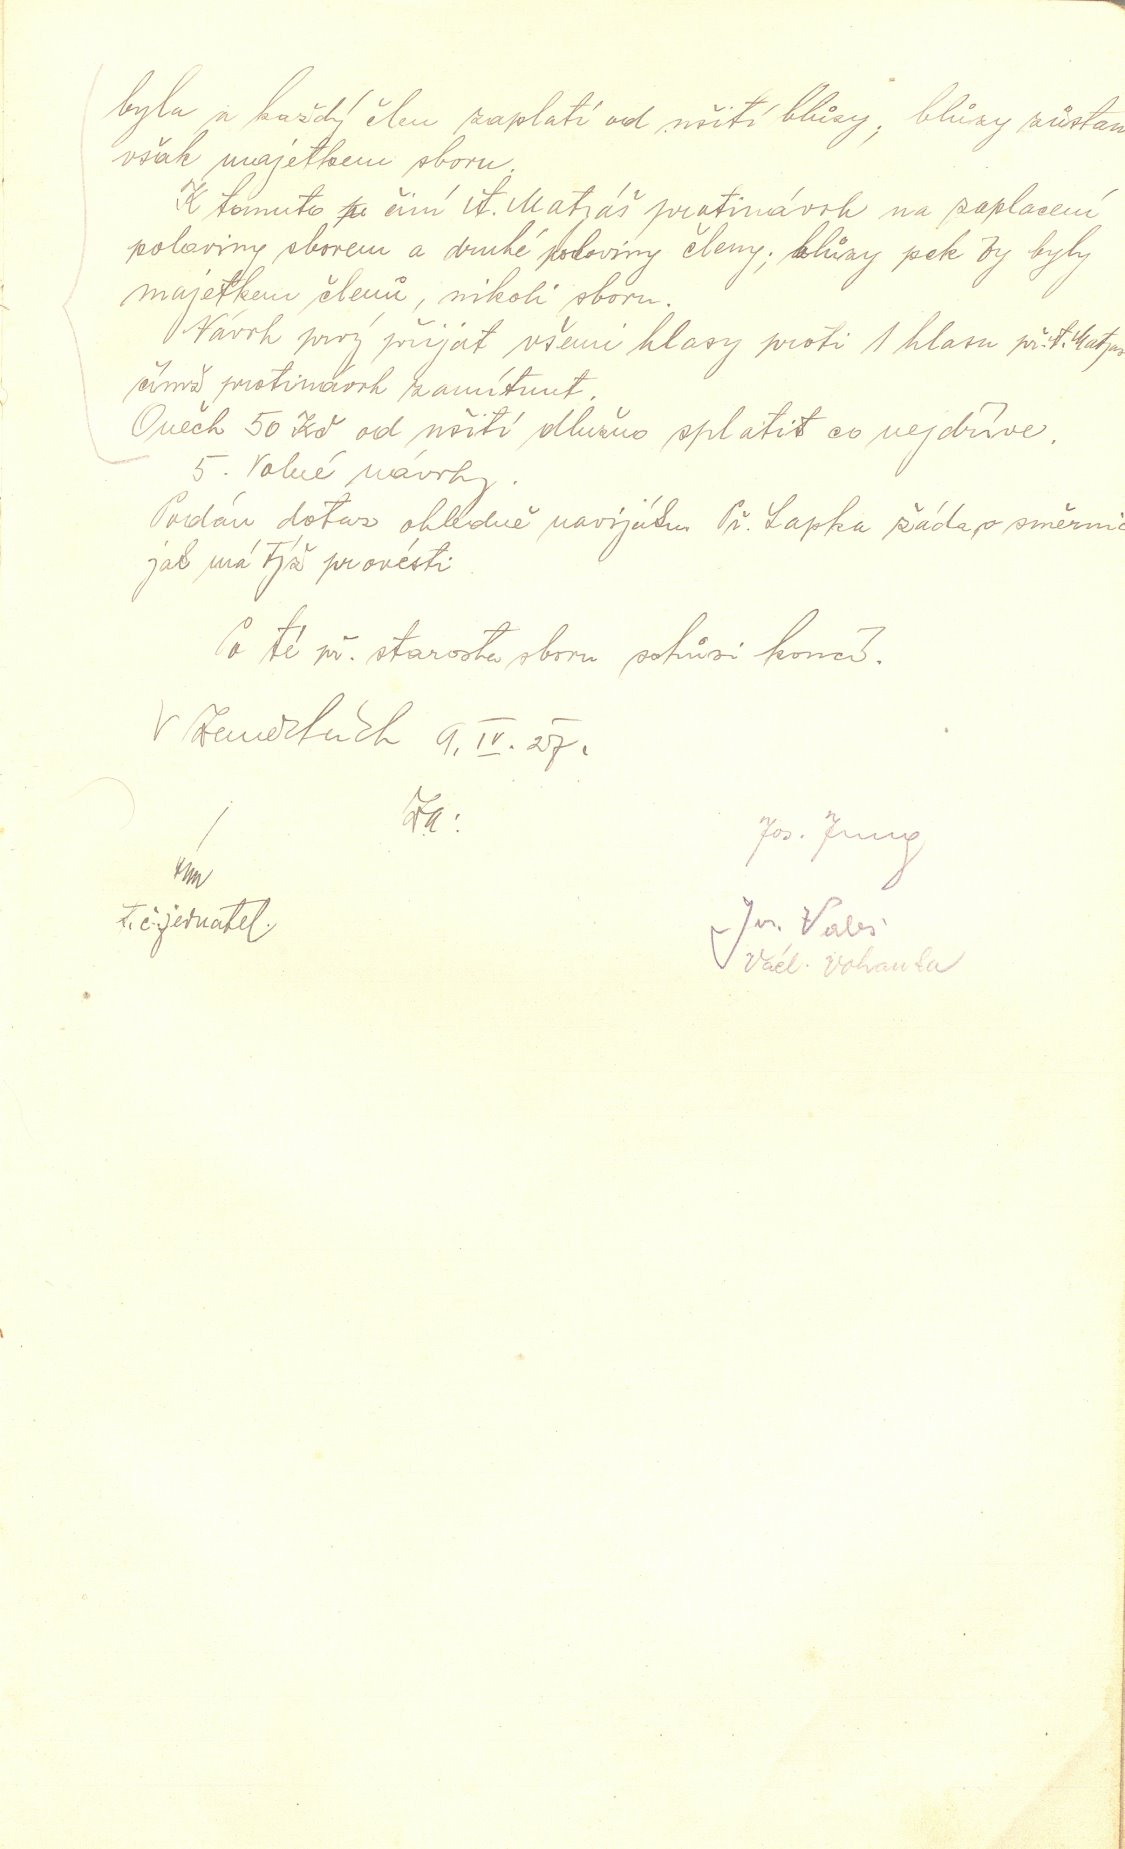 byla a každý člen zaplatí od ušití blůzy, blůzy zůstan
však majetkem sboru.
K tomuto činí A. Matjáš protinávrh na zaplacení
poloviny sborem a druhé poloviny členy; blůzy pak by byly
majetkem členů, nikoli sboru.
Návrh prvý přijat všemi hlasy proti 1 hlasu př. A. Matjáš
čímž protinávrh zamítnut.
Oněch 50 Kč od ušití dlužno splatit co nejdříve.
5. Volné návrhy.
Podán dotaz ohledně navijáku Př. Lapka žádá o směrnic
jak má týž provésti
Po té př. starosta sboru schůzi končí.
V 9. IV. 27.
Za:
Jos. Jung
t.č. jednatel.
Jos. Valeš
Václ.